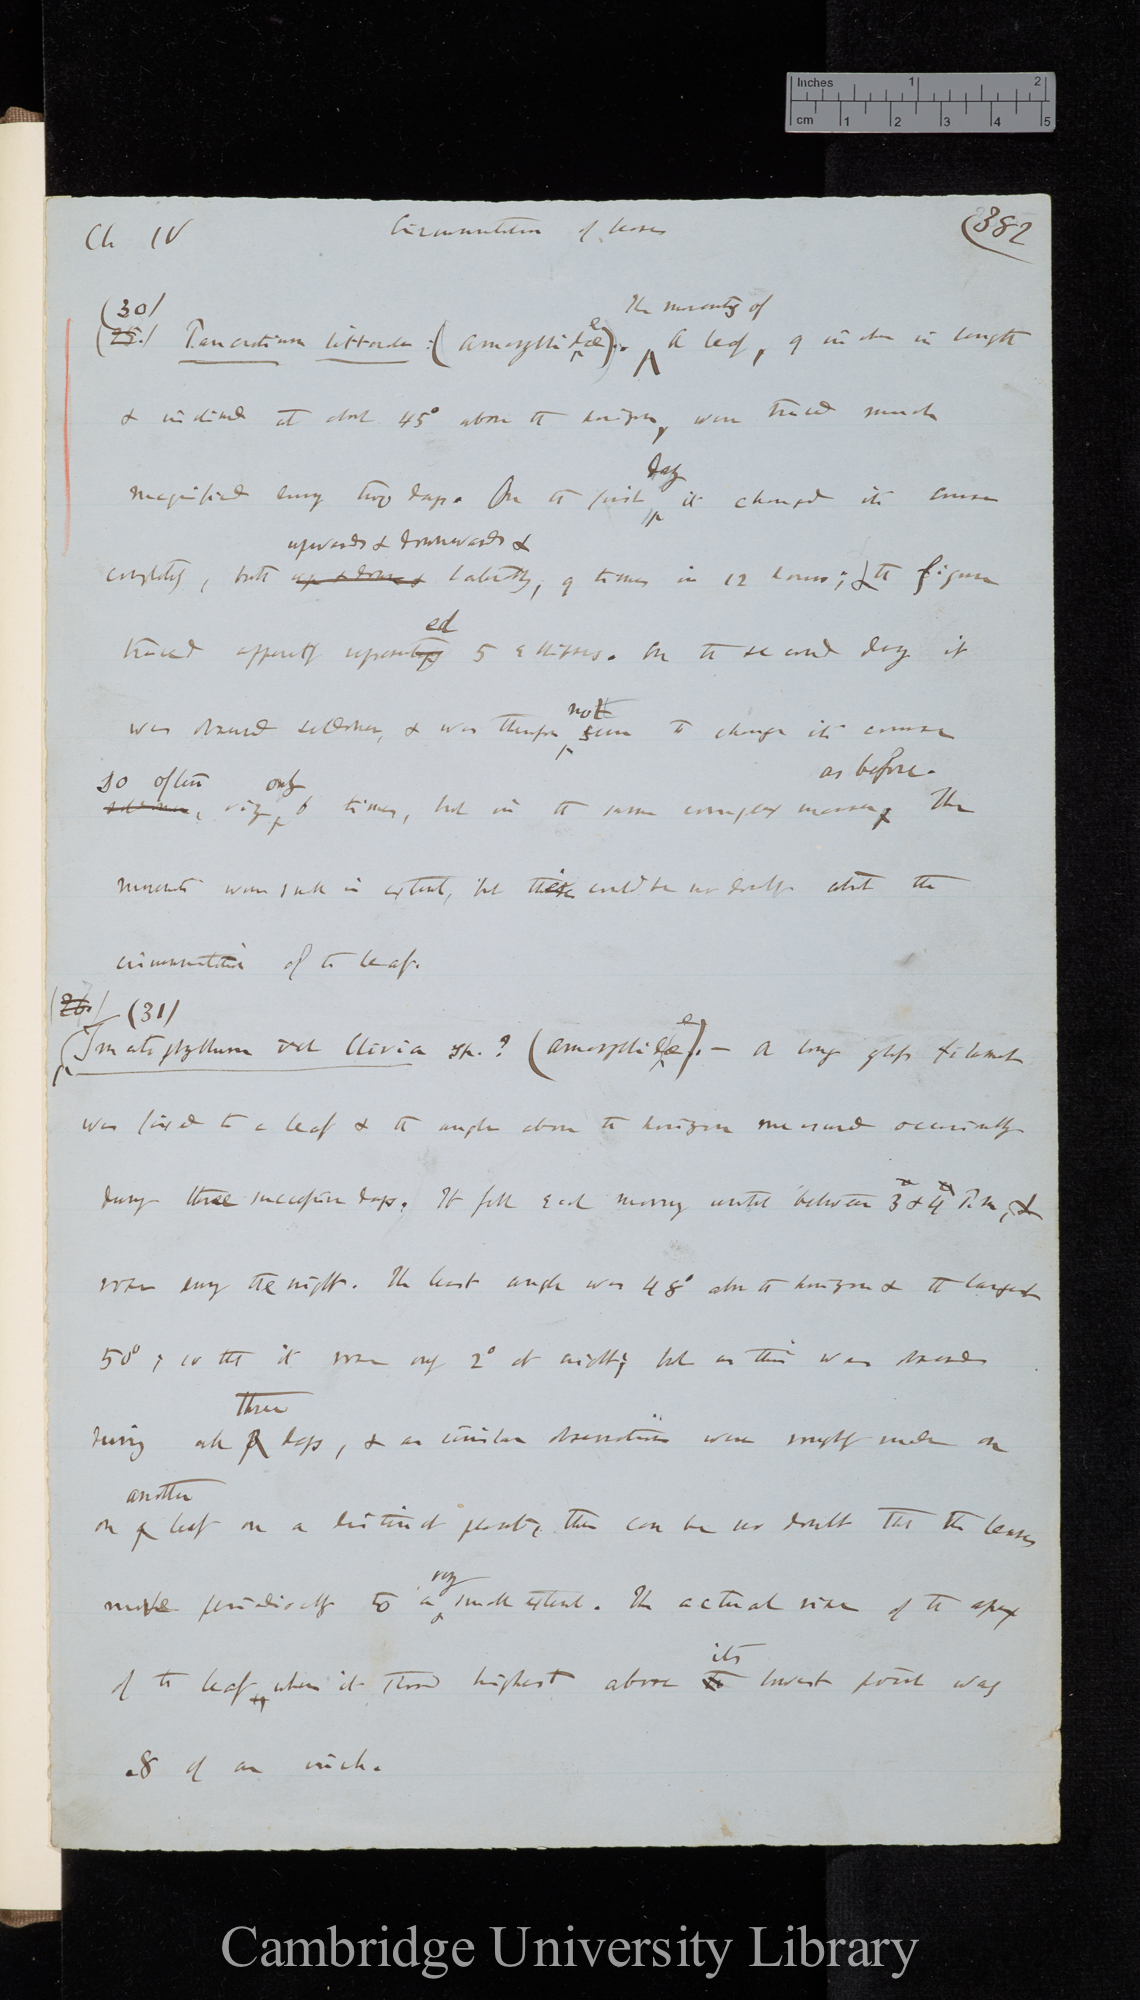 Inches 1 2
cm 1 2 3 4 5
Ch IV Circumnutation of leaves (382
(30)
The movements of
(25.) Pancratium littorale: (Amaryllideæ).. A leaf, 9 inches in length
& inclined at about 45° above the horizon, were traced much
magnified during two days. On the first day it changed its course
upwards & downwards &
completely, both up & down & laterally, 9 times in 12 hours; & the figure
traced apparently represented 5 ellipses. On the second day it
was observed seldomer, & was therefore not seen to change its course
so often only as before.
seldomer, viz, 6 times, but in the same complex manner. The
movements were small in extent, but there could be no doubt about the
circumnutation of the leaf.
(26.) (31)
Imatophyllum vel Clivia sp.? (Amaryllideæ).— A long glass filament
was fixed to a leaf & the angle above the horizon measured occasionally
during three successive days. It fell each morning until between 3 & 4 P.m, &
rose during the night. The least angle was 48° above the horizon & the largest
50°; so that it rose only 2° at night; but as this was observed
three
during each days, & as similar observations were nightly made on
another
on a leaf on a distinct plant, there can be no doubt that the leaves
very
move periodically to a small extent. The actual rise of the apex
its
of the leaf when it stood highest above the lowest point was
.8 of an inch.
Cambridge University Library